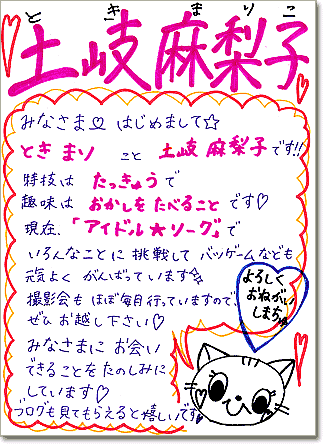 と き ま り こ
土岐麻梨子
みなさま♡ はじめまして☆
とき まり こと 土岐 麻梨子 です!!
特技は たっきゅうで
趣味は おかしを たべること です♡
現在、「アイドル★リーグ」で
いろんなことに 挑戦して バツゲームなども
元気よく がんばっています☆
撮影会も ほぼ毎月行っていますので、
ぜひ お越し下さい♡
みなさまに お会い
できることを たのしみに
しています♡
ブログも見てもらえると嬉しいです
よろしく
おねがい
しまぁす